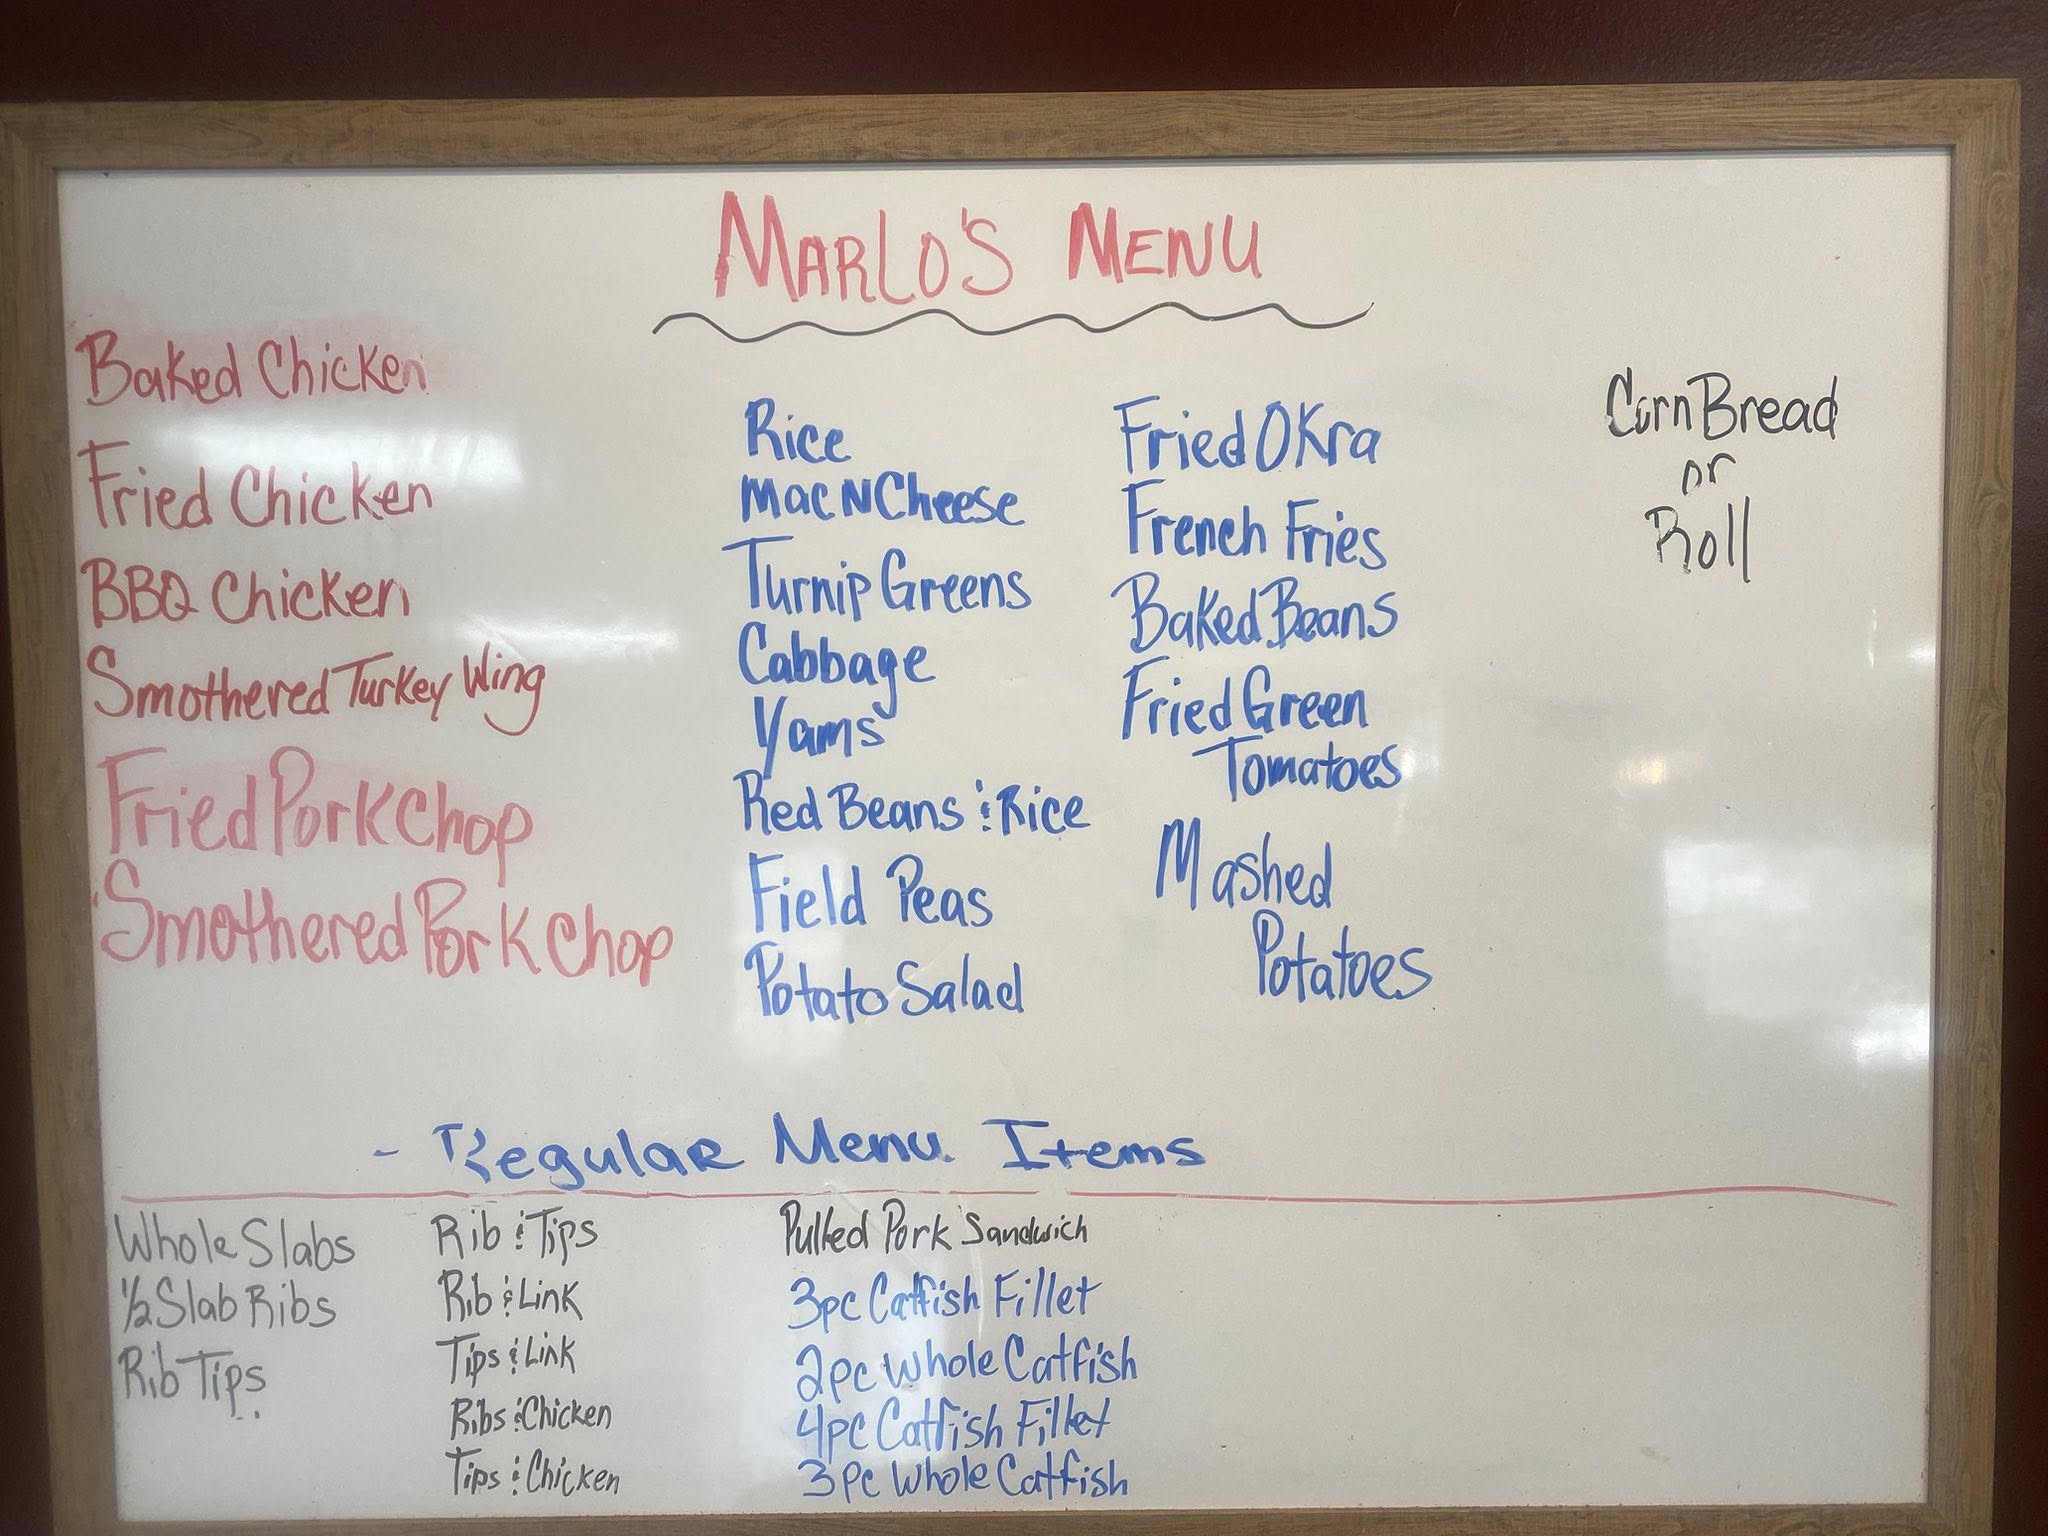 MARLO'S MENU
Baked Chicken
Fried Chicken
BBQ Chicken
Smothered Turkey Wing
Fried Pork Chop
Smothered Pork Chop
Rice
Mac N Cheese
Turnip Greens
Cabbage
Yams
Red Beans & Rice
Field Peas
Potato Salad
Fried Okra
French Fries
Baked Beans
Fried Green
Tomatoes
Mashed
Potatoes
Corn Bread
or
Roll
- Regular Menu Items
Whole Slabs
1/2 Slab Ribs
Rib Tips
Rib & Tips
Rib & Link
Tips & Link
Ribs & Chicken
Tips & Chicken
Pulled Pork Sandwich
3pc Catfish Fillet
2pc Whole Catfish
4pc Catfish Fillet
3pc Whole Catfish